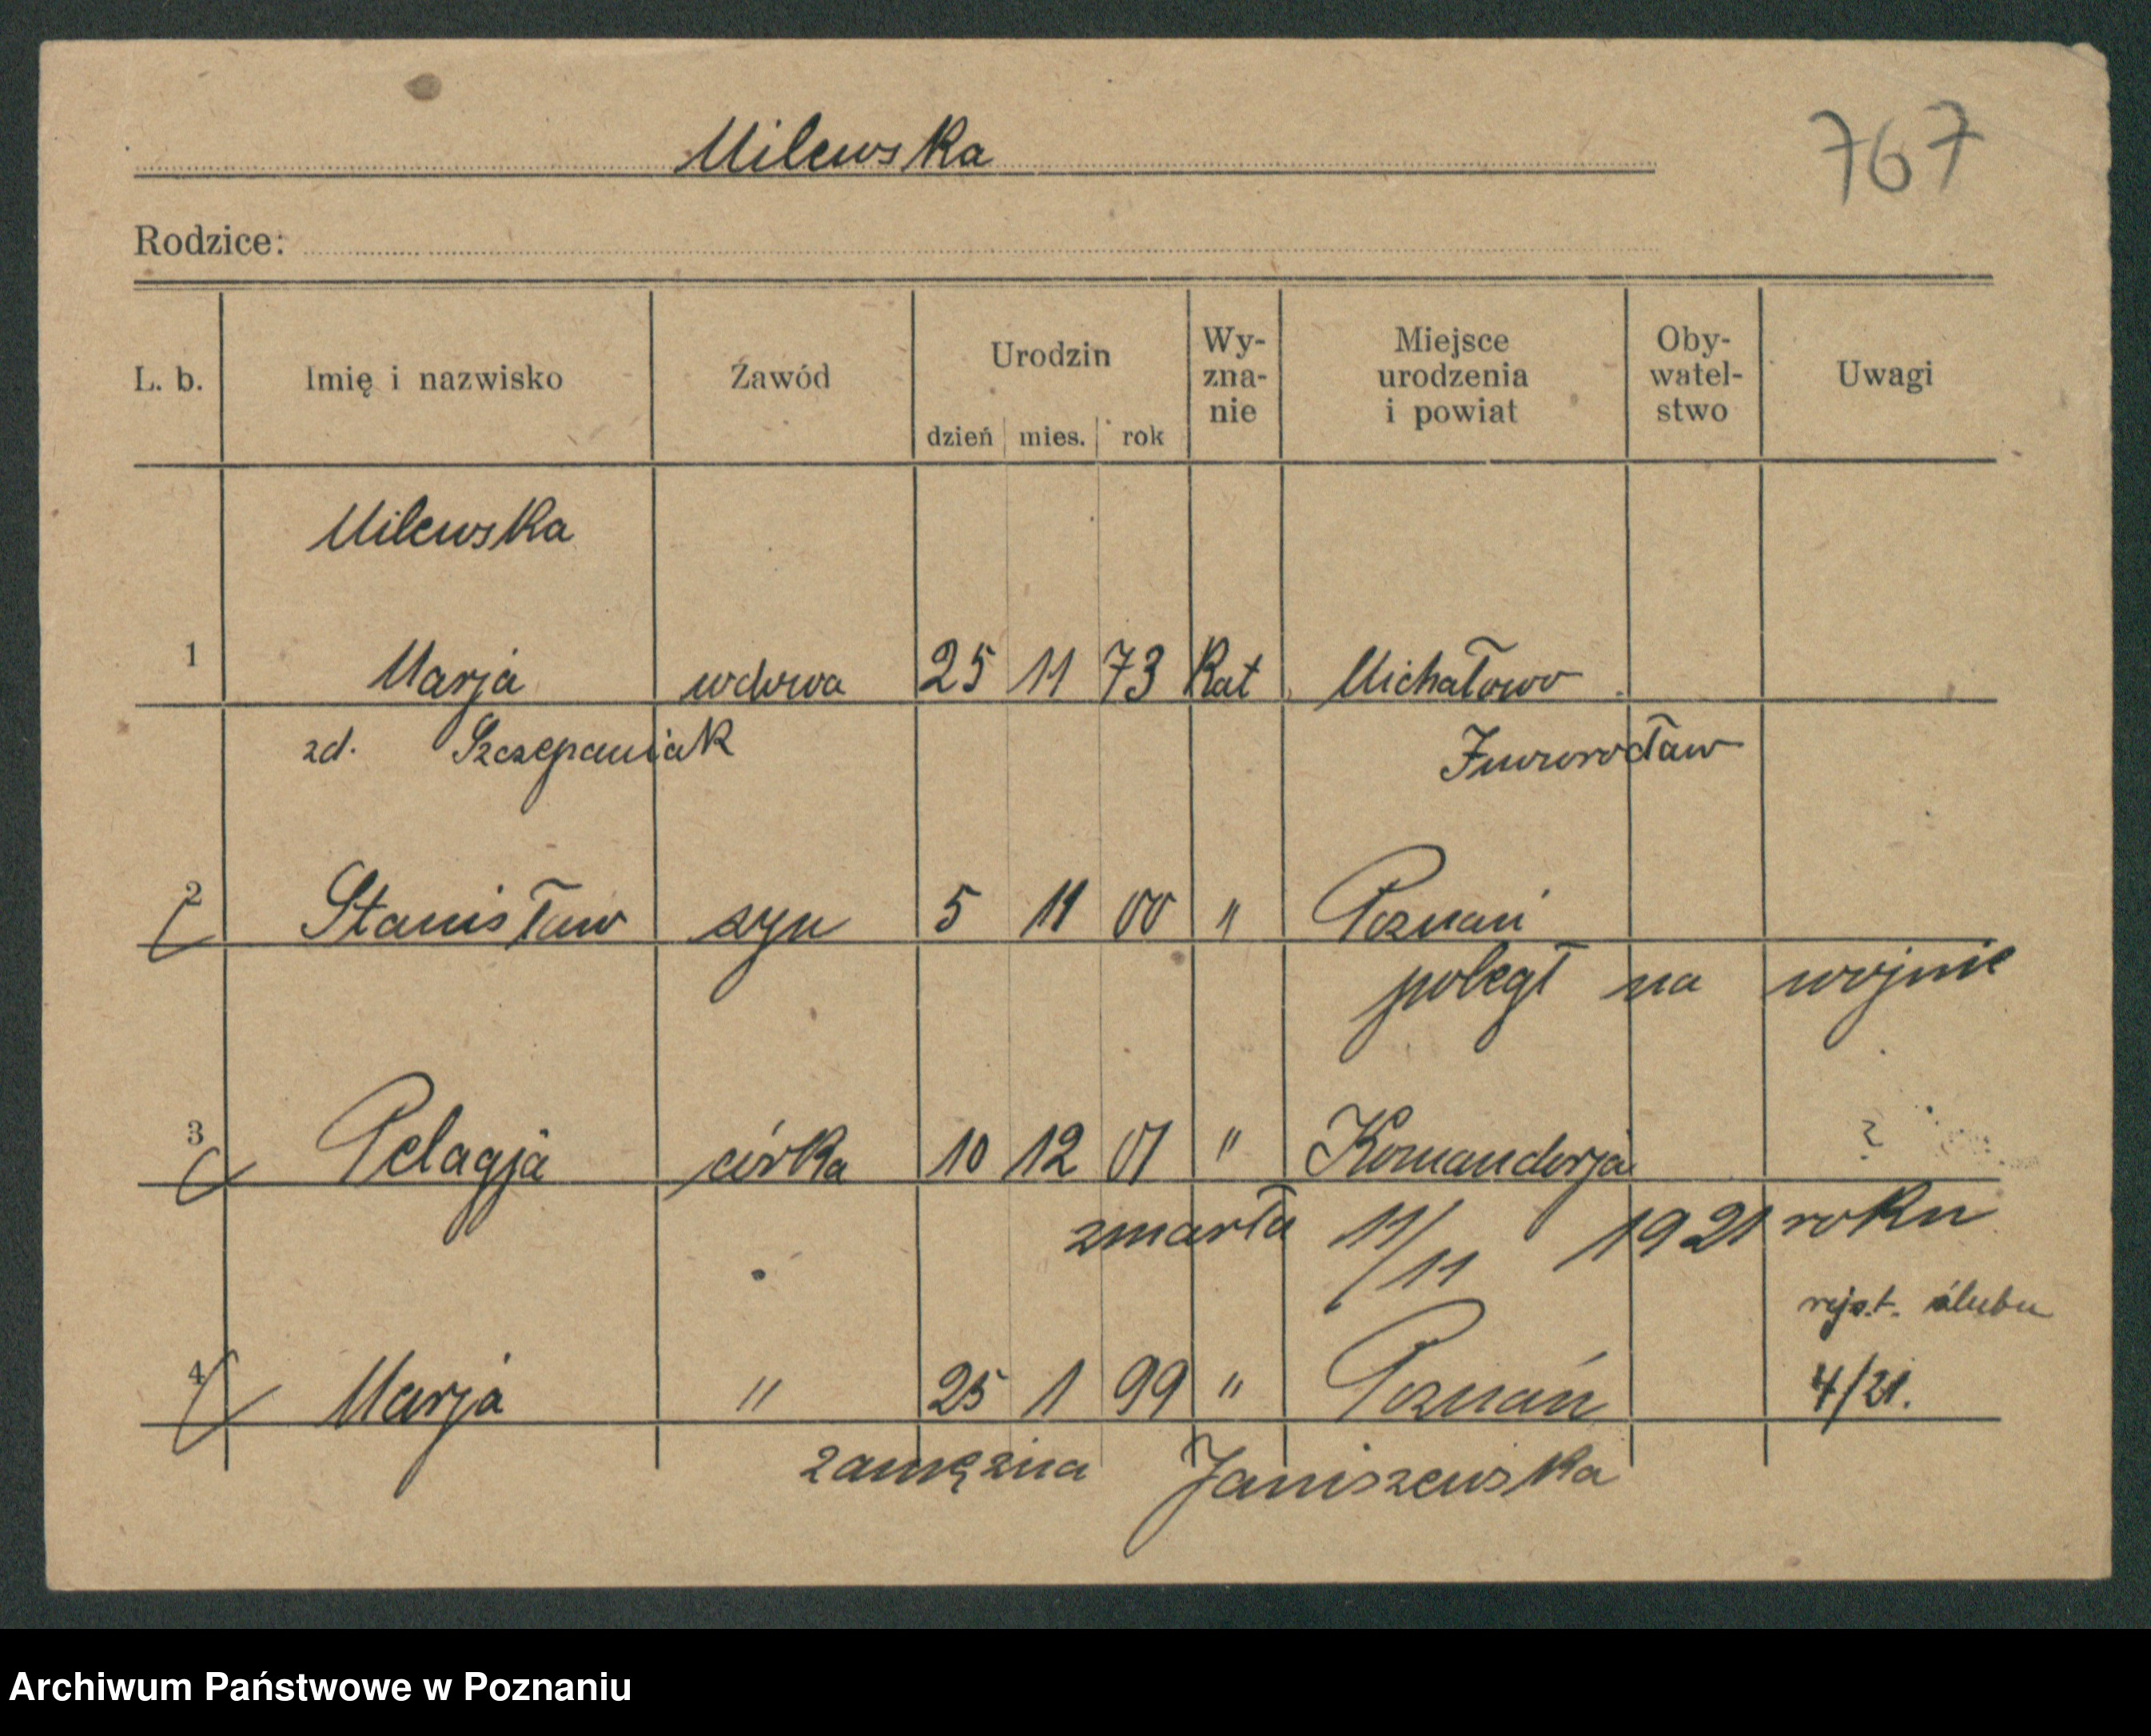 Milewska
767
Rodzice:
L. b. Imię i nazwisko Zawód Urodzin dzień mies. rok Wy-zna-nie Miejsce urodzenia i powiat Oby-watel-stwo Uwagi
Milewska
1 Marja wdowa 25 11 73 Kat Michałowo
zd. Szczepaniak Inowrocław
2 Stanisław syn 5 11 00 " Poznań
poległ na wojnie
3 Pelagja córka 10 12 01 " Komanderja ?
zmarła 11/11 1921 roku
rejst. ślubu
4 Marja " 25 1 99 " Poznań 4/21.
zamężna Janiszewska
Archiwum Państwowe w Poznaniu